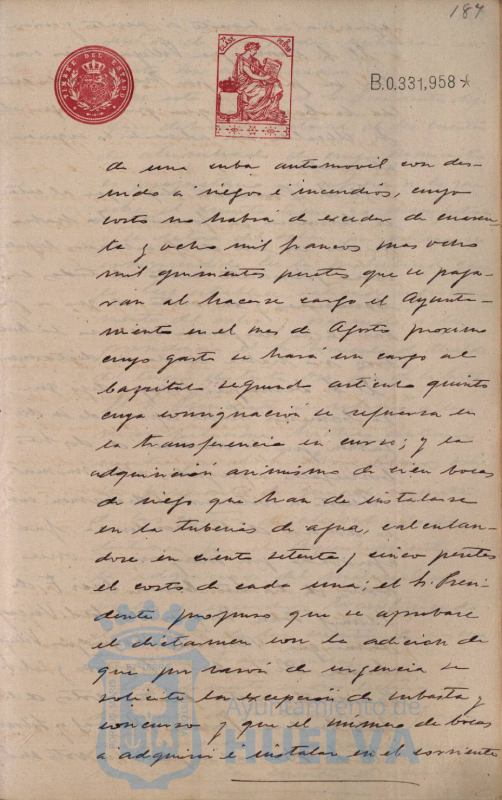 187
TIMBRE DEL ESTADO
CLASE
B.0.331,958*
de una cuba automovil con des-
tinido a riegos é incendios, cuyo
costo no habrá de exceder de cuaren-
ta y ocho mil francos mas ocho
mil quinientas pesetas que se paga-
ran al hacerse cargo el Ayunta-
miento en el mes de Agosto proximo
cuyo gasto se hará con cargo al
Capitulo segundo articulo quinto
cuya consignación se refuerza en
la transferencia en curso; y la
adquisición asimismo de cien bocas
de riego que han de instalarse
en la tuberia de agua, calculan-
dose en ciento setenta y cinco pesetas
el costo de cada una; el Sr. Presi-
dente propuso que se aprobase
el dictamen con la adición de
que por razón de urgencia se
solicite la excepción de subasta y
concurso y que el número de bocas
a adquirir é instalar en el corriente
Ayuntamiento de
HUELVA